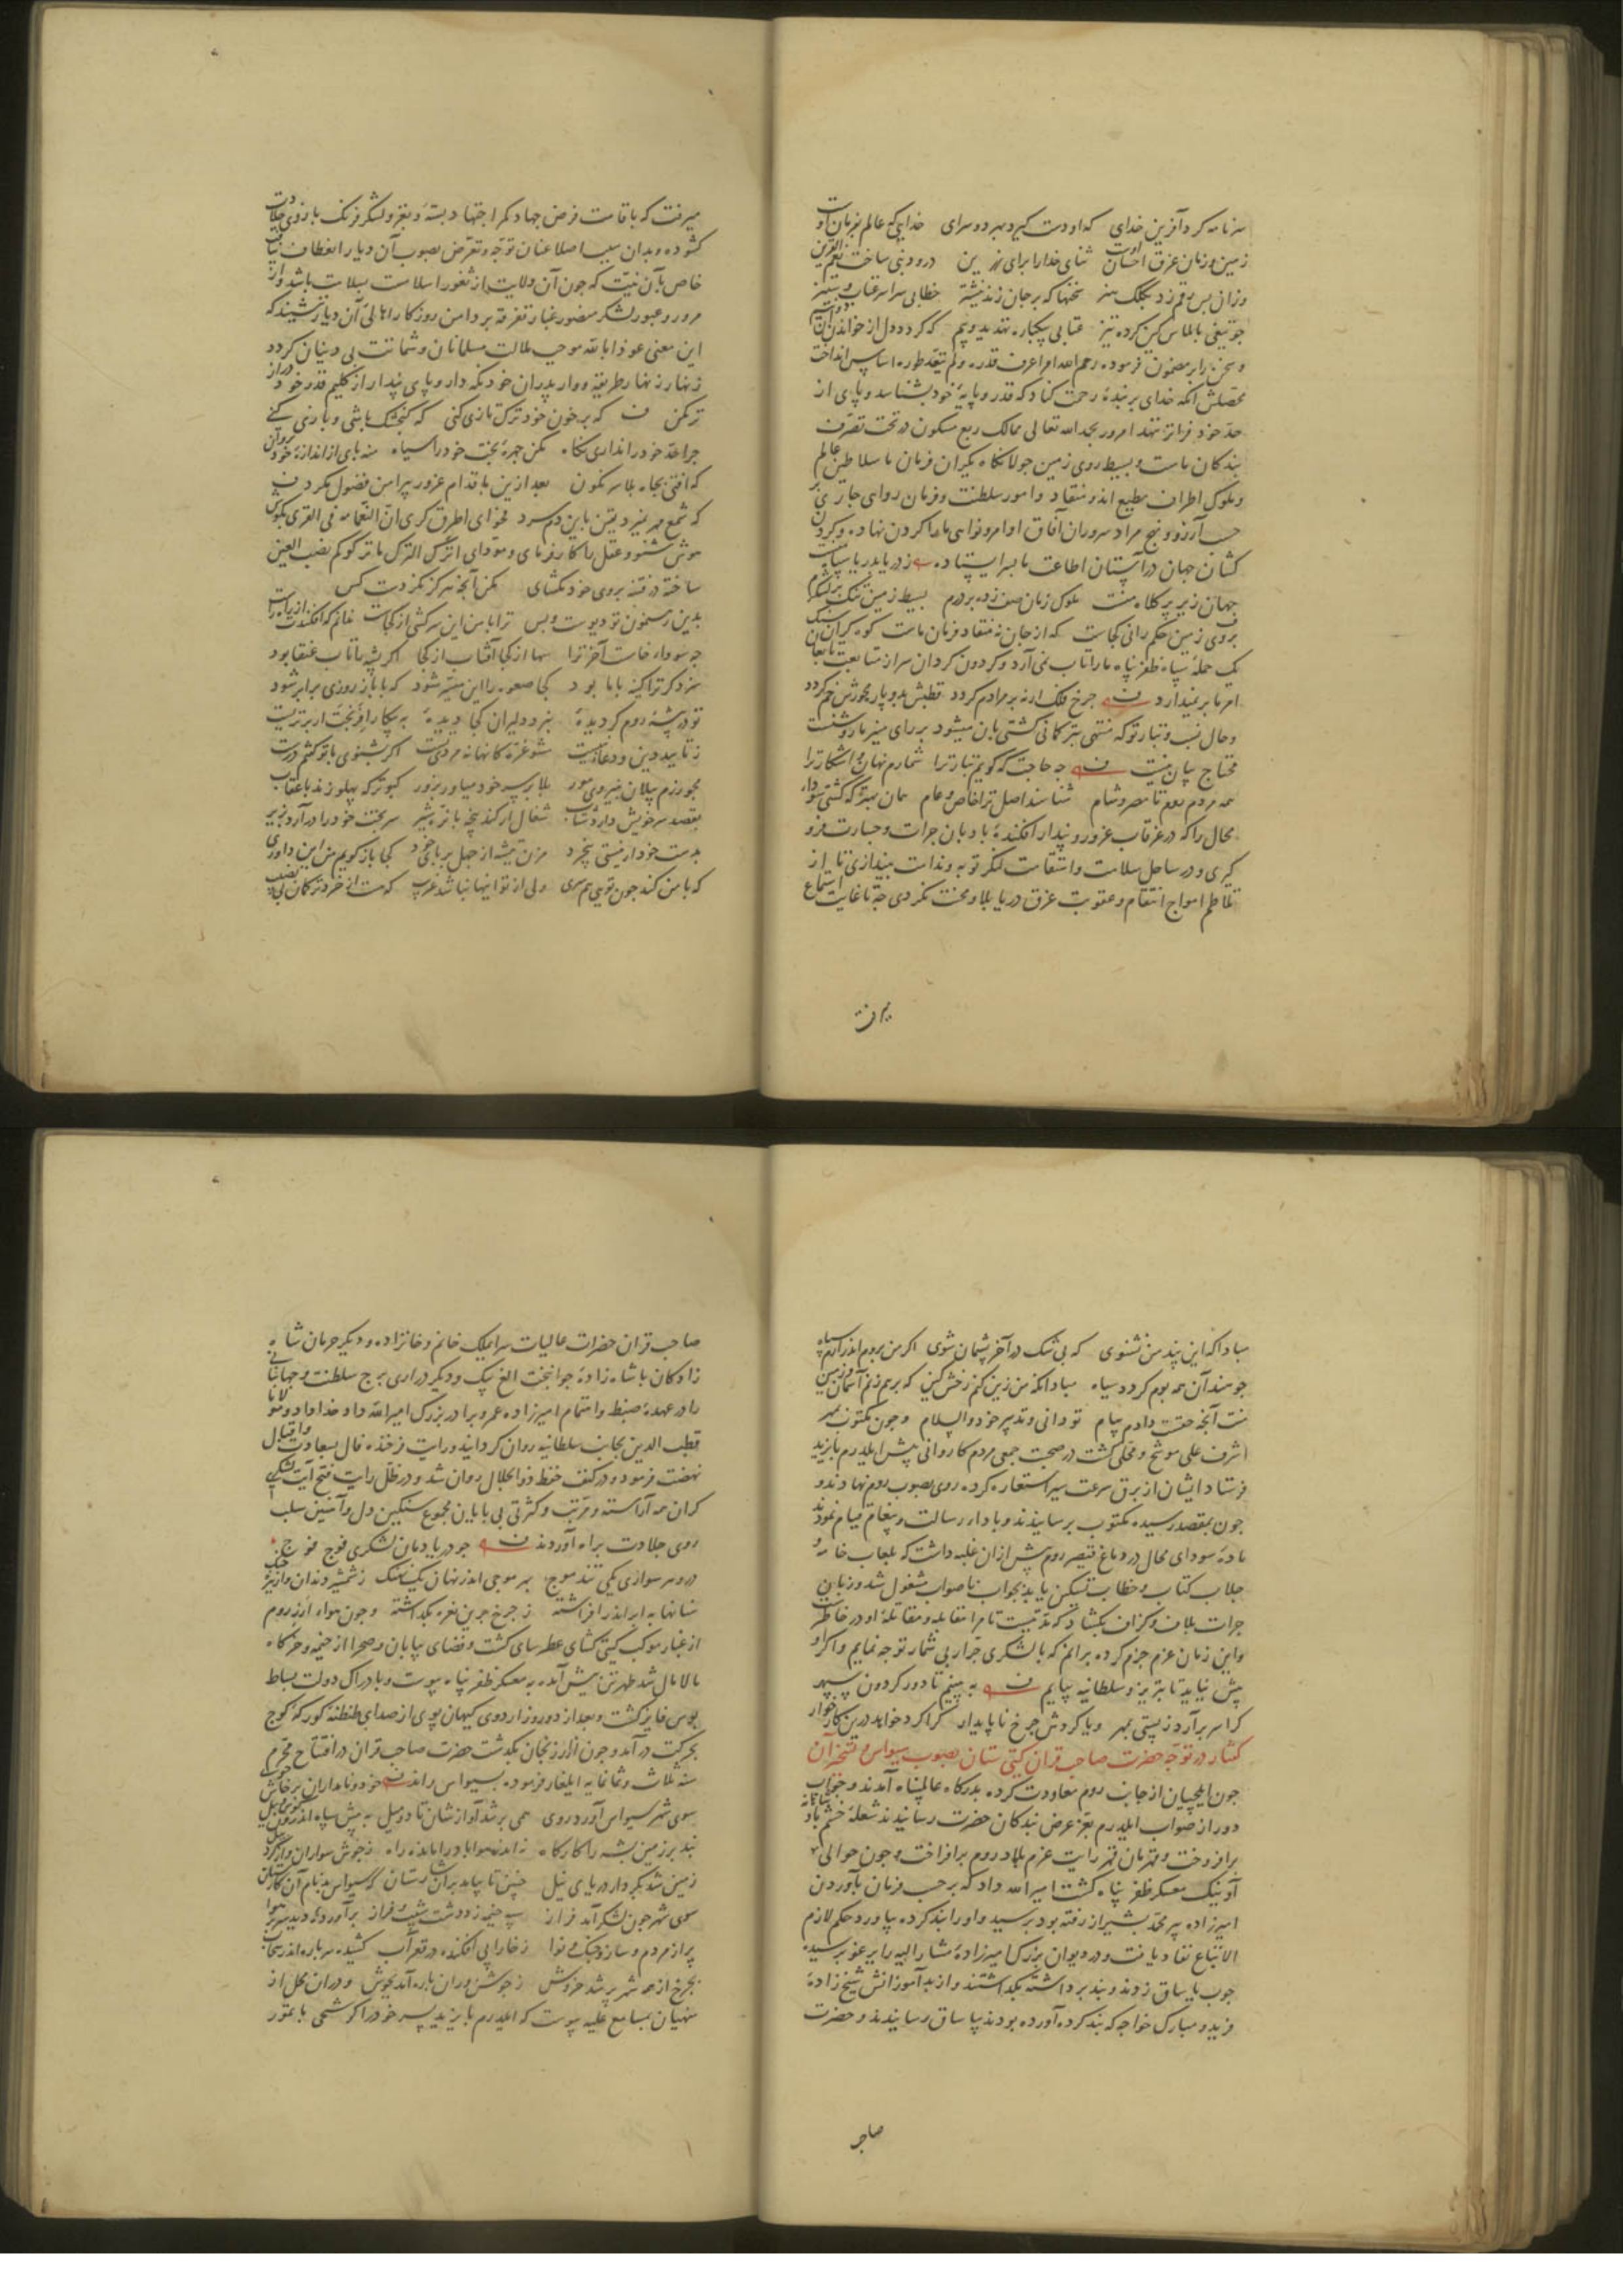 سر نامه کرد آفرین خدای که او دست گیرد بهر دو سرای خدایی که عالم بفرمان اوست
زمین و زمان غرق احسان اوست ثنای خدا را برای رزین درود نبی ساخت
وزان پس رقم زد بکلک سخنها که بر جان زند نیشتر خطابی سراسر عتاب و ستیز
چو تیغی بالماس کین کرده تیز عتابی بیکباره تهدید و بیم که گردد دل از خواندن آن
و سخن را بر مضمون فرموده رحم الله امرا عرف قدره ولم یتعد طوره اساس انداخت
محصلش آنکه خدای بر بنده رحمت کناد که قدر و پایه خود بشناسد و پای از
حد خود فراتر ننهد امروز بحمد الله تعالی ممالک ربع مسکون در تحت تصرف
بندکان ماست و بسیط روی زمین جولانکاه یکران فرمان ما سلاطین عالم
و ملوک اطراف مطیع اند و منقاد و امور سلطنت و فرمان روایی جاری بر
حسب آرزو و نهج مراد سروران آفاق اوامر و نواهی ما را کردن نهاده و کردن
کشان جهان در آستان اطاعت ما بسر ایستاده ز دریا بدریا سپاه
جهان زیر پر کلاه منست ملوک زمان صف زده بر درم بسیط زمین تنک بر لشکرم
بروی زمین حکم رانی کجاست که از جان نه منقاد فرمان ماست کوه کران
یک حمله سپاه ظفر پناه ما را تاب نمی آرد و کردون کردان سر از متابعت
امر ما بر نمیدارد چرخ فلک ار نه بر مرادم کردد قطبش بدو پار محورش خم کردد
و حال نسب و تبار تو که منتهی بترکمانی کشتی بان میشود بر رای منیر ما روشنست
محتاج بیان نیست چه حاجت که کویم تبار ترا شمارم نهان و اشکار ترا
همه مردم روم تا مصر و شام شناسند اصل ترا خاص و عام همان بهتر که کشتی سودای
محال را که در غرقاب غرور و پندار افکنده بادبان جرات و جسارت فرو
کیری و در ساحل سلامت و استقامت لنکر توبه و ندامت بیندازی تا از
تلاطم امواج انتقام و عقوبت غرق دریا بلا و محنت نکردی چه تا غایت استماع
میرفت
میرفت که باقامت فرض جهاد کمر اجتهاد بسته و بغزو لشکر فرنک بازوی جلادت
کشوده و بدان سبب اصلا عنان توجه و تعرض بصوب آن دیار انعطاف نیافت
خاص بآن نیت که چون آن ولایت از ثغور اسلامست بسلامت باشد و از
مرور و عبور لشکر منصور غبار تفرقه بر دامن روزکار اهالی آن دیار ننشیند که
این معنی عوذا بالله موجب ملالت مسلمانان و شماتت بی دینان کردد
زنهار زنهار طریقه و وار پدران خود نکه دار و پای پندار از کلیم قدر خود دراز
تر مکن که بر خون خود ترک تازی کنی که کنجشک باشی و بازی کنی
چرا حد خود را نداری نکاه مکن چهره بخت خود را سیاه منه پای از اندازه خود برون
که افتی بچاه بلا سرنکون بعد ازین باقدام غرور پیرامن فضول مکرد
که شمع مهر نمیرد یقین باین دم سرد فحوای اطرق کری ان النعامه فی القری بکوش
هوش شنو و عقل را کار فرمای و مودای اترک الترک ما ترکوکم نصب العین
ساخته در فتنه بروی خود مکشای مکن آنچه هرکز نکردست کس
بدین رهنمون تو دیوست و بس ترا با من این سرکشی از کجاست
چه سوداء خامست آخر ترا سها از کجا آفتاب از کجا اکر پشه را تاب عنقا بود
سزد کر ترا کینه با ما بود کجا صعوه را این میسر شود که با باز روزی برابر شود
تو در بیشه روم کردیده نبرد دلیران کجا دیده به پیکار افرنجت ار برتریست
ز تایید دین و دعاء نبیست مشو غره کانها نه مردیست اکر بشنوی با تو کفتم درست
مجو رزم پیلان بنیروی مور بلا بر سر خود میاور بزور کبوتر که پهلو زند با عقاب
بقصد سر خویش دارد شتاب شغال ار کند پنجه با نره شیر سر بخت خود را در آرد بزیر
بدست خود ار نیستی بی خرد مزن تیشه از جهل بر پای خود کجا باز کویم من این داوری
که با من کند چون تویی همسری ولی از تو اینها نباشد غریب که هست از خرد ترکمان بی نصیب
مبادا که این پند من نشنوی که بی شک در آخر پشیمان شوی اکر من بروم اندر آرم سپاه
چو هند آن همه بوم کردد سیاه مبادا که من زین کنم رخش کین که بر هم زنم آسمان و زمین
منت آنچه حقست دادم پیام تو دانی و تدبیر خود والسلام و چون مکتوب بمهر
اشرف علی موشح و محلی کشت در صحبت جمعی مردم کاردانی پیش ایلدرم بایزید
فرستاد ایشان از برق سرعت سیر استعاره کرده روی بصوب روم نهادند و
چون بمقصد رسیده مکتوب برسانیدند و بادا رسالت و پیغام قیام نمودند
ماده سودای محال در دماغ قیصر روم پیش از ان غلبه داشت که بلعاب خامه و
جلاب کتاب و خطاب تسکین یابد بجواب ناصواب مشغول شد و زبان
جرات بلاف و کزاف بکشاد که مدتیست تا مرا مقابله و مقاتله او در خاطرست
و این زمان عزم جزم کرده برانم که با لشکری جرار بی شمار توجه نمایم و اکر او
پیش نیاید تا تبریز و سلطانیه بیایم به بینیم تا دور کردون سپهر
کرا سر بر آرد ز پستی بمهر و یا کردش چرخ ناپایدار کرا کرد خواهد درین کار خوار
کفتار در توجه حضرت صاحب قران کیتی ستان بصوب سیواس و فتح آن
چون ایلچیان از جانب روم معاودت کرده بدرکاه عالمپناه آمدند و جواب
دور از صواب ایلدرم بعز عرض بندکان حضرت رسانیدند شعله خشم
برافروخت و قهرمان قهر رایت عزم بلاد روم برافراخت و چون حوالی
آونیک معسکر ظفر پناه کشت امیر الله داد که بر حسب فرمان بآوردن
امیرزاده پیر محمد بشیراز رفته بود برسید و او را بند کرده بیاورد و حکم لازم
الاتباع نفاد یافت و در دیوان بزرک امیرزاده مشار الیه را یرغو پرسیده
چوب یاساق زدند و بند برداشته بکذاشتند و از بدآموزانش شیخ زاده
فرید و مبارک خواجه که بند کرده آورده بودند بیاساق رسانیدند و حضرت
صاحب
صاحب قران حضرات عالیات سرایملک خانم و خانزاده و دیکر حرمان شاه
زادکان با شاه زاده جوانبخت الغ بیک و دیکر دراری برج سلطنت و جهانبانی
را در عهده ضبط و اهتمام امیرزاده عمر و برادر بزرک امیر الله داد خداداد و مولانا
قطب الدین بجانب سلطانیه روان کردانید و رایت فرخنده فال بسعادت و اقبال
نهضت فرمود و در کنف حفظ ذو الجلال روان شد و در ظل رایت فتح آیت لشکری
کران همه آراسته و مرتب و کثرتی بی پایان مجموع سنکین دل و آهنین سلب
روی جلادت براه آوردند چو دریا دمان لشکری فوج فوج
درو هر سواری یکی تند موج بهر موجی اندر نهان یک نهنک ز شمشیر دندان و از نیزه چنک
سنانها به ابر اندر افراشته ز چرخ برین نعره بکذاشته و چون هواء ارزروم
از غبار موکب کیتی کشای عطر سای کشت و فضای بیابان و صحرا از خیمه و خرکاه
مالامال شد طهرتن پیش آمده به معسکر ظفر پناه پیوست و بادراک دولت بساط
بوس فایز کشت و بعد از دو روز اردوی کیهان پوی از صدای طنطنه کورکه کوچ
بحرکت در آمد و چون از ارزنجان بکذشت حضرت صاحب قران در افتتاح محرم
سنه ثلاث و ثمانمایه ایلغار فرموده بسیواس راند خود و نامداران پرخاش جوی
سوی شهر سیواس آورد روی همی بر شد آوازشان تا دو میل به پیش سپاه اندرون
نبد بر زمین پشه را کارکاه نه اندر هوا باد را مانده راه ز جوش سواران و از کرد
زمین شد بکردار دریای نیل چنین تا بیامد بر آن شارستان که سیواس بد نام آن
سوی شهر چون لشکر آمد فراز سپه خیمه زد و دشت شیب و فراز بر آورده دید سر بر هوا
پر از مردم و ساز و جنک و نوا ز خارا پی افکنده در قعر آب کشیده سر باره اندر سحاب
بچرخ از همه شهر بر شد خروش ز جوشن وران باره آمد بجوش و دران محل از
منهیان بمسامع علیه پیوست که ایلدرم بایزید پسر خود را کرشجی با تمور